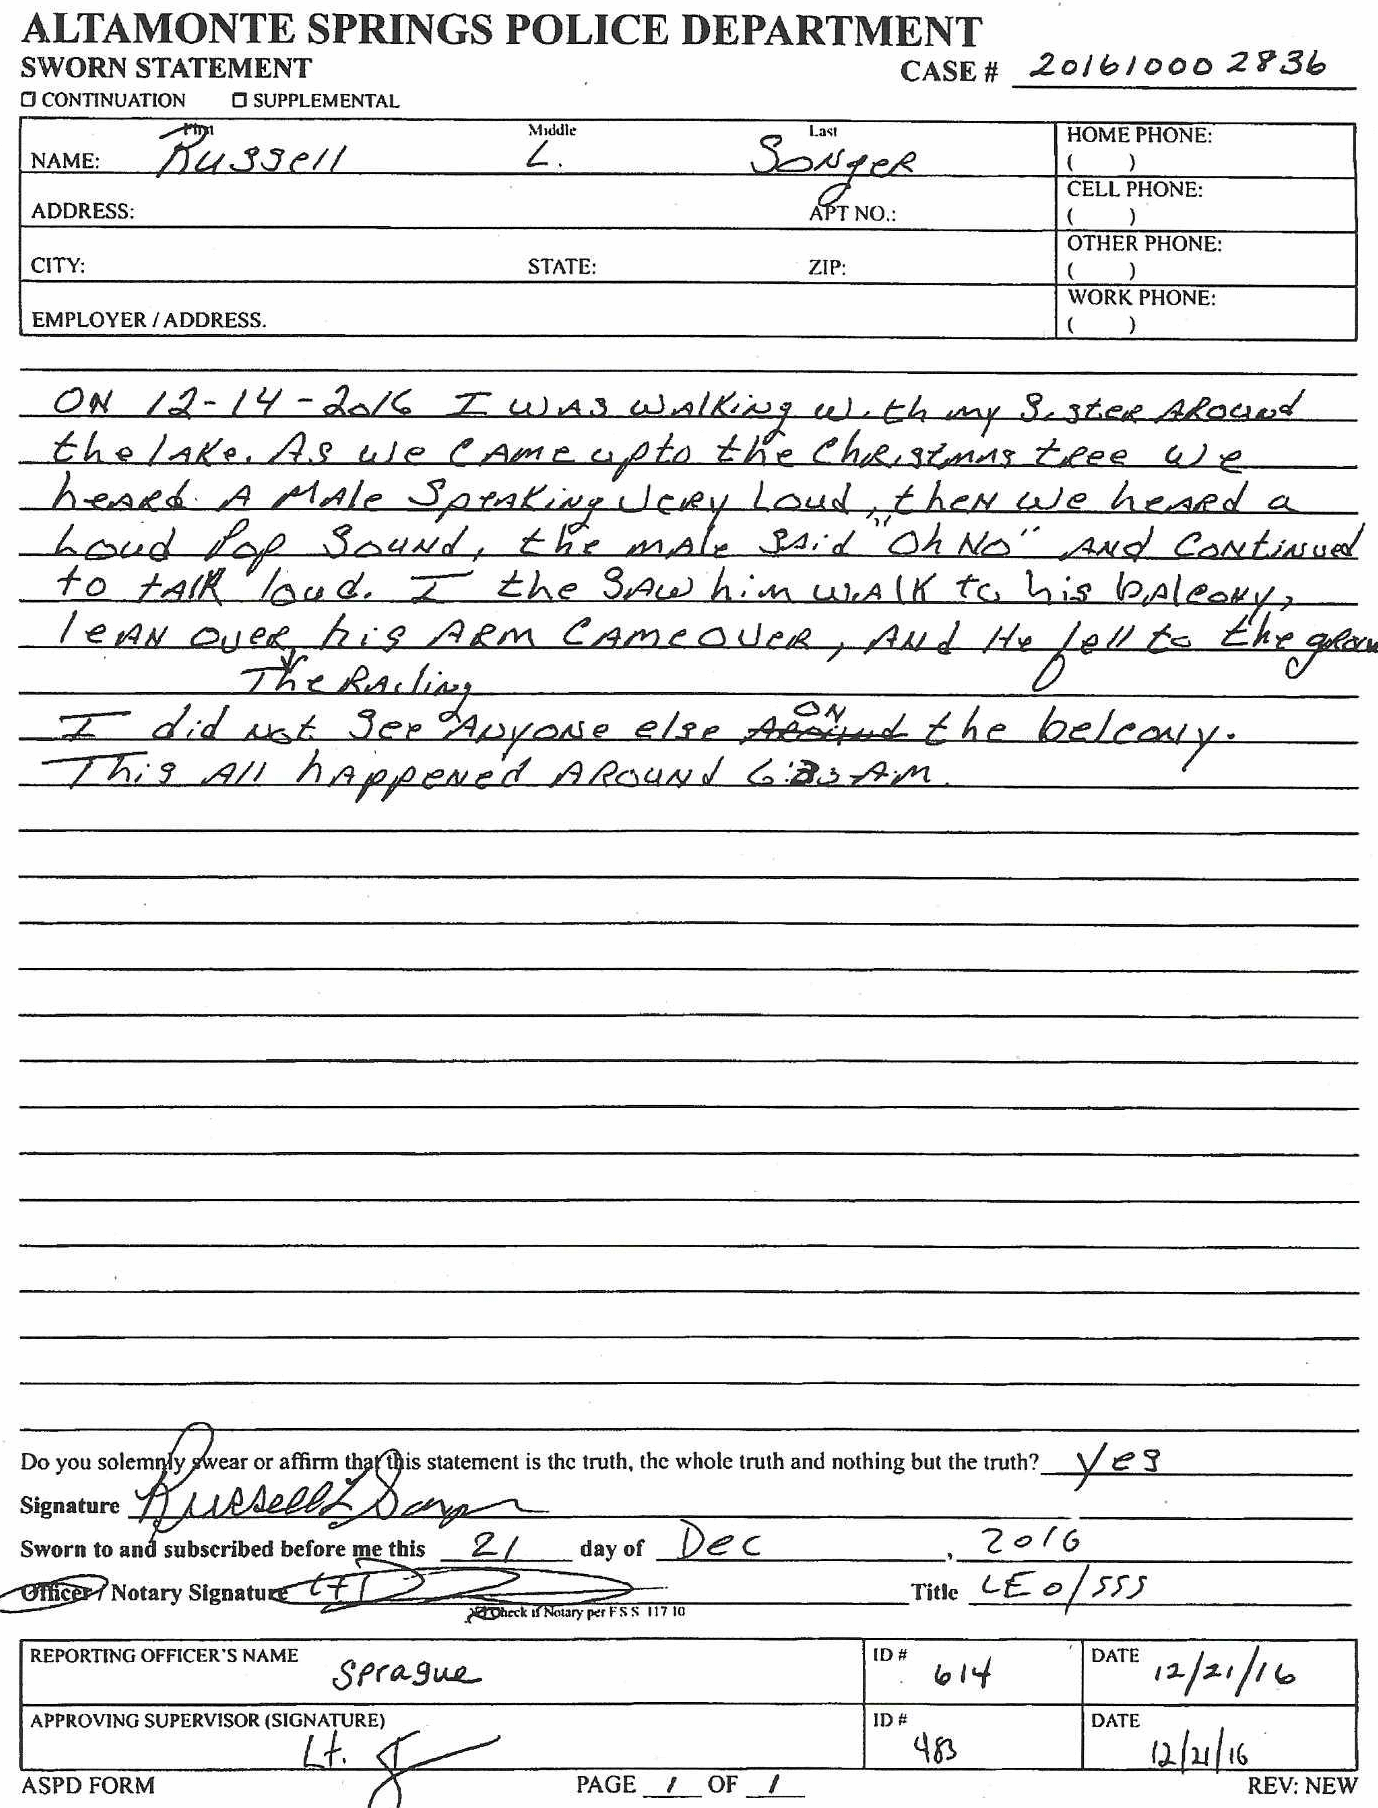 ALTAMONTE SPRINGS POLICE DEPARTMENT
SWORN STATEMENT CASE # 201610002836
CONTINUATION SUPPLEMENTAL
First Middle Last HOME PHONE:
NAME: Russell L. Songer ( )
CELL PHONE:
ADDRESS: APT NO.: ( )
OTHER PHONE:
CITY: STATE: ZIP: ( )
WORK PHONE:
EMPLOYER / ADDRESS. ( )
ON 12-14-2016 I WAS WALKING With my Sister AROUND
the lAKe. AS we CAMe up to the ChRistmas tRee we
heARd A MAle SpeAKing Very Loud, then we heARd a
Loud Pop SOUNd, the mAle SAid "Oh No" ANd CONtiNued
to tAlk loud. I the SAW him WAlK to his bAlcony,
leAN OveR, his ARM CAMe OVER, ANd He fell to the grou
The RAiling
I did Not See ANyONe else ON the belcony.
This All hAppeNed AROUNd AM.
Do you solemnly swear or affirm that this statement is the truth, the whole truth and nothing but the truth? yes
Signature Russell L Songer
Sworn to and subscribed before me this 21 day of Dec , 2016
Officer / Notary Signature Title LEO/SSS
Check if Notary per F S S 117 10
REPORTING OFFICER'S NAME Sprague ID # 614 DATE 12/21/16
APPROVING SUPERVISOR (SIGNATURE) Lt. ID # 483 DATE 12/21/16
ASPD FORM PAGE 1 OF 1 REV: NEW